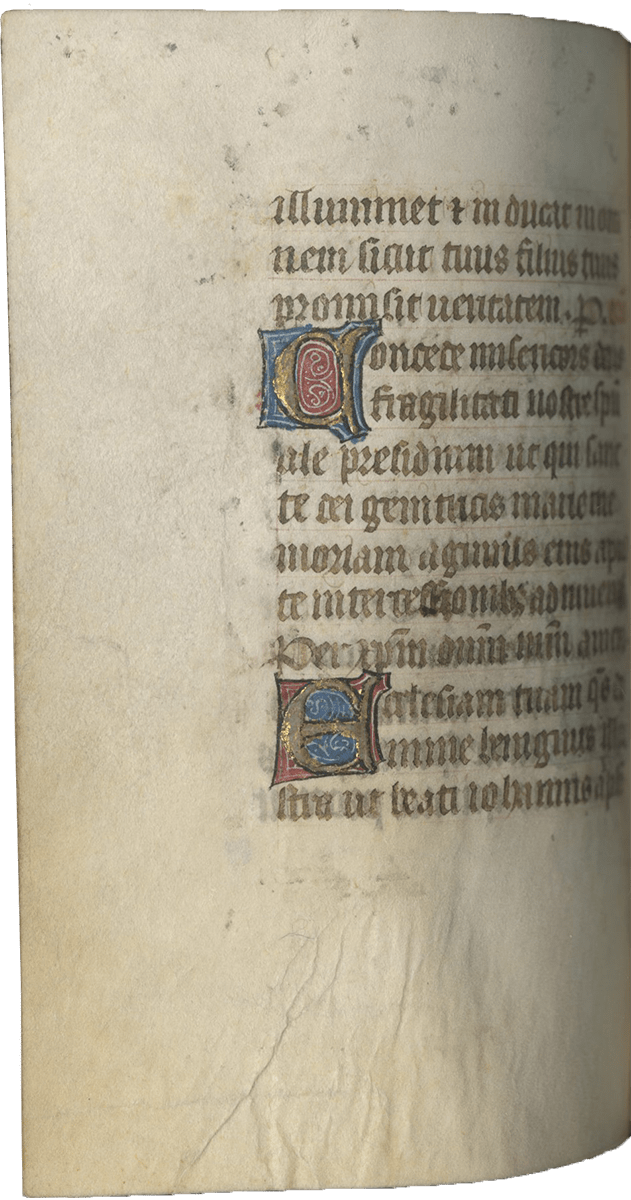 illuminet ⁊ inducat in om
nem sicut tuus filius tuus
promisit ueritatem. P.
Concede misericors deus
fragilitati nostre spũ
ale presidium ut qui sanc
te dei genitricis marie me
moriam agimus eius
te intercessionibus
Per xp̄m dn̄m nr̄m amen
Ecclesiam tuam q̄s
mine benignus
stra ut beati iohannis apl̄